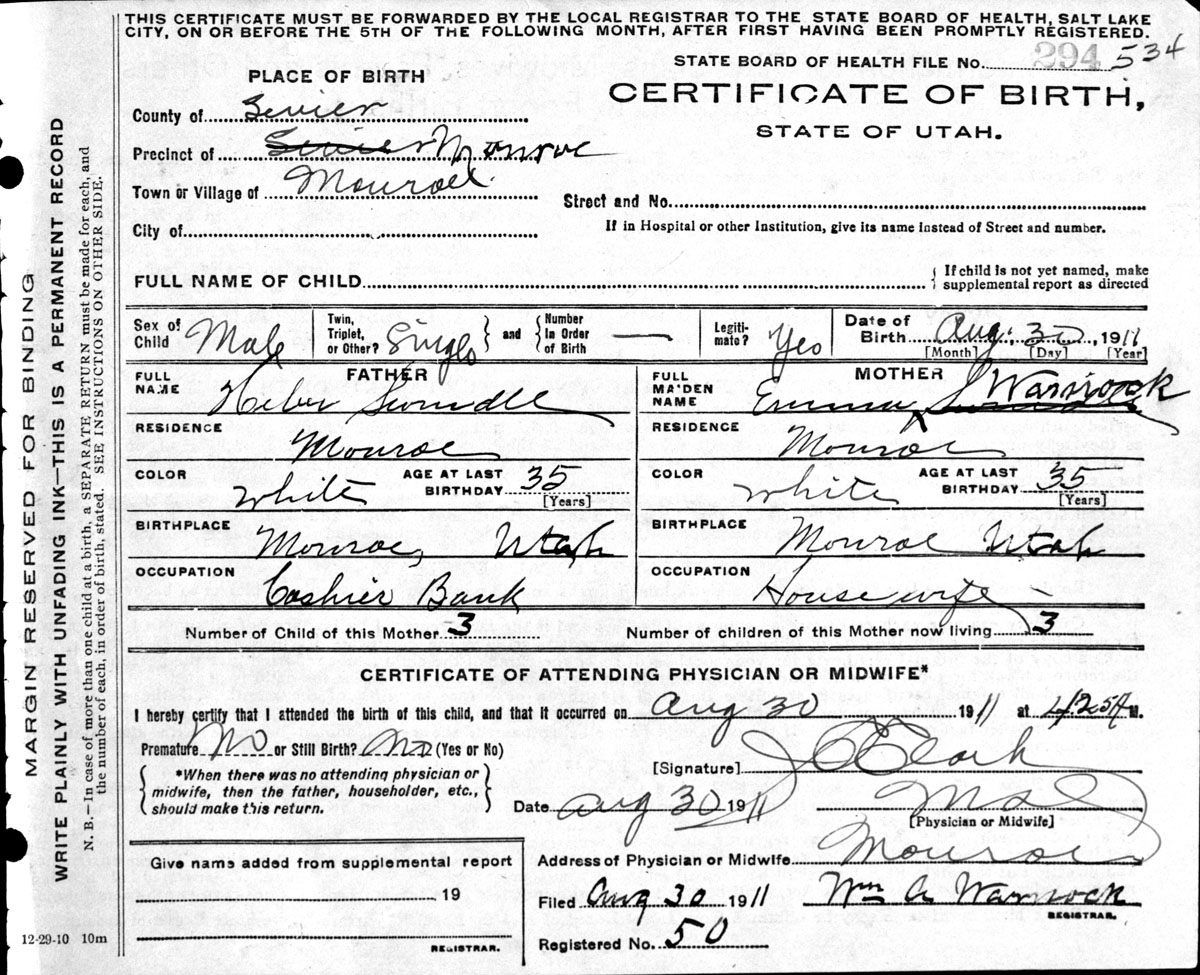 THIS CERTIFICATE MUST BE FORWARDED BY THE LOCAL REGISTRAR TO THE STATE BOARD OF HEALTH, SALT LAKE
CITY, ON OR BEFORE THE 5TH OF THE FOLLOWING MONTH, AFTER FIRST HAVING BEEN PROMPTLY REGISTERED.
STATE BOARD OF HEALTH FILE No. 294 534
PLACE OF BIRTH
CERTIFICATE OF BIRTH,
STATE OF UTAH.
County of Sevier
Precinct of Sevier Monroe
Town or Village of Monroe
Street and No.
City of
If in Hospital or other Institution, give its name instead of Street and number.
FULL NAME OF CHILD
If child is not yet named, make
supplemental report as directed
Sex of Child Male
Twin, Triplet, or Other? Single and Number in Order of Birth —
Legiti-mate? Yes
Date of Birth Aug. 30 1911
[Month] [Day] [Year]
FATHER
FULL NAME Heber Swindle
MOTHER
FULL MAIDEN NAME Emma Warnock
RESIDENCE Monroe
RESIDENCE Monroe
COLOR white AGE AT LAST BIRTHDAY 35 [Years]
COLOR white AGE AT LAST BIRTHDAY 35 [Years]
BIRTHPLACE Monroe, Utah
BIRTHPLACE Monroe Utah
OCCUPATION Cashier Bank
OCCUPATION Housewife
Number of Child of this Mother 3
Number of children of this Mother now living 3
CERTIFICATE OF ATTENDING PHYSICIAN OR MIDWIFE*
I hereby certify that I attended the birth of this child, and that it occurred on Aug 30 1911 at M.
Premature No or Still Birth? No (Yes or No)
*When there was no attending physician or
midwife, then the father, householder, etc.,
should make this return.
[Signature] Clark
Date Aug 30 1911
[Physician or Midwife]
Give name added from supplemental report
19
REGISTRAR.
Address of Physician or Midwife Monroe
Filed Aug 30 1911 Wm A Warnock
REGISTRAR.
Registered No. 50
12-29-10 10m
MARGIN RESERVED FOR BINDING
WRITE PLAINLY WITH UNFADING INK—THIS IS A PERMANENT RECORD
N. B.—In case of more than one child at a birth, a SEPARATE RETURN must be made for each, and
the number of each, in order of birth, stated. SEE INSTRUCTIONS ON OTHER SIDE.